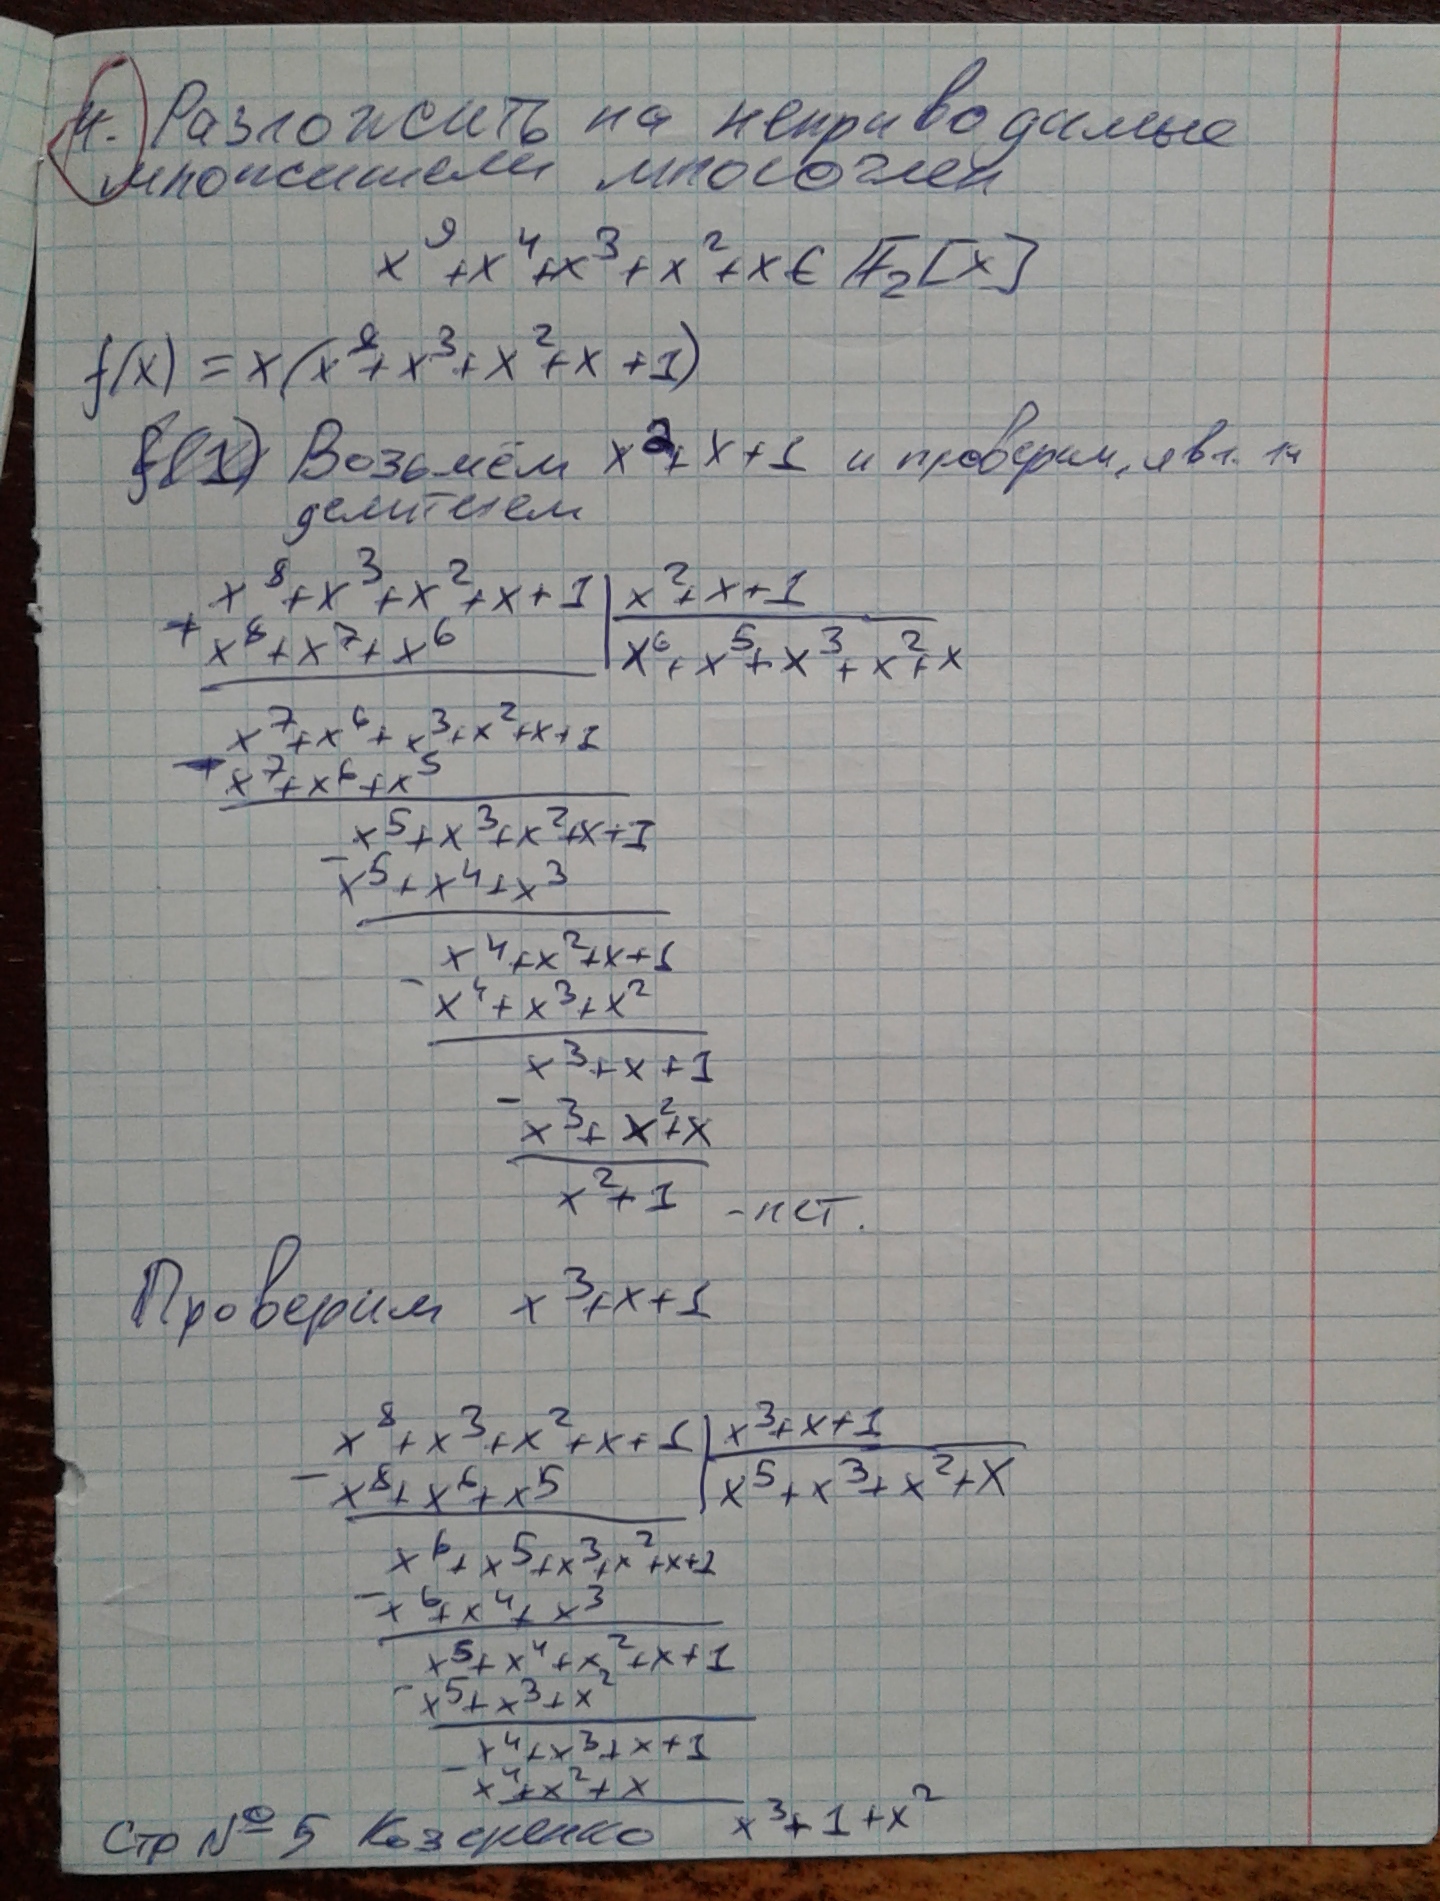 4. Разложить на неприводимые
множители многочлен
x⁹+x⁴+x³+x²+x ∈ F₂[x]
f(x) = x(x⁸+x³+x²+x+1)
Возьмём x²+x+1 и проверим, явл. ли
делителем
x⁸+x³+x²+x+1 | x²+x+1
+ x⁸+x⁷+x⁶ | x⁶+x⁵+x³+x²+x
x⁷+x⁶+x³+x²+x+1
+ x⁷+x⁶+x⁵
x⁵+x³+x²+x+1
- x⁵+x⁴+x³
x⁴+x²+x+1
- x⁴+x³+x²
x³+x+1
- x³+x²+x
x²+1 - нет.
Проверим x³+x+1
x⁸+x³+x²+x+1 | x³+x+1
- x⁸+x⁶+x⁵ | x⁵+x³+x²+x
x⁶+x⁵+x³+x²+x+1
- x⁶+x⁴+x³
x⁵+x⁴+x²+x+1
- x⁵+x³+x²
x⁴+x³+x+1
- x⁴+x²+x
x³+1+x²
Стр №5 Козеренко